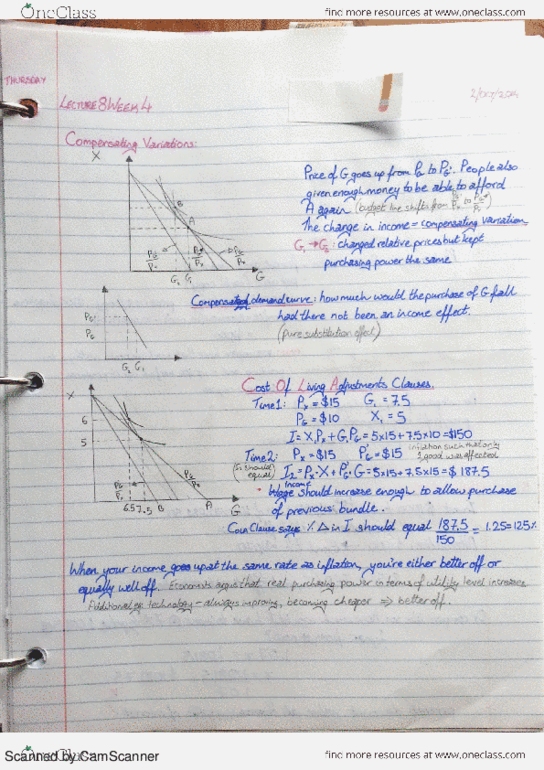 OneClass find more resources at www.oneclass.com
THURSDAY
LECTURE 8 WEEK 4
Compensating Variations:
X
B
A
G
G₂ G₁
Price of G goes up from P_G to P_G'. People also
given enough money to be able to afford
A again (budget line shifts from
The change in income = compensating variation
G₁→G₂: changed relative prices but kept
purchasing power the same
Compensated demand curve: how much would the purchase of G fall
had there not been an income effect.
(pure substitution effect)
P_G'
P_G
G₂ G₁
Cost Of Living Adjustments Clauses.
Time 1: Pₓ = $15 G₁ = 7.5
P_G = $10 X₁ = 5
I = X₁Pₓ + G₁P_G = 5x15 + 7.5x10 = $150
Time 2: Pₓ = $15 P_G' = $15 inflation such that only 1 good was affected
(I₂ should equal) I₂ = Pₓ·X + P_G'·G = 5x15 + 7.5x15 = $187.5
X
6
5
6.5 7.5 B A G
• income
Wage should increase enough to allow purchase
of previous bundle.
Clause says % Δ in I should equal 187.5/150 = 1.25 = 125%
When your income goes up at the same rate as inflation, you're either better off or
equally well off. Economists argue that real purchasing power in terms of utility level increase
technology - always improving, becoming cheaper ⇒ better off.
Scanned by CamScanner
OneClass find more resources at www.oneclass.com